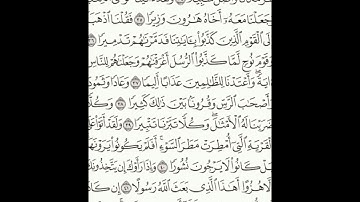 جَعَلْنَا مَعَهُۥٓ أَخَاهُ هَـٰرُونَ وَزِيرًا ٣٥ فَقُلْنَا ٱذْهَبَا
إِلَى ٱلْقَوْمِ ٱلَّذِينَ كَذَّبُوا۟ بِـَٔايَـٰتِنَا فَدَمَّرْنَـٰهُمْ تَدْمِيرًا ٣٦
وَقَوْمَ نُوحٍ لَّمَّا كَذَّبُوا۟ ٱلرُّسُلَ أَغْرَقْنَـٰهُمْ وَجَعَلْنَـٰهُمْ لِلنَّاسِ
ءَايَةً ۖ وَأَعْتَدْنَا لِلظَّـٰلِمِينَ عَذَابًا أَلِيمًا ٣٧ وَعَادًا وَثَمُودَا۟
وَأَصْحَـٰبَ ٱلرَّسِّ وَقُرُونًۢا بَيْنَ ذَٰلِكَ كَثِيرًا ٣٨ وَكُلًّا
ضَرَبْنَا لَهُ ٱلْأَمْثَـٰلَ ۖ وَكُلًّا تَبَّرْنَا تَتْبِيرًا ٣٩ وَلَقَدْ أَتَوْا۟ عَلَى
ٱلْقَرْيَةِ ٱلَّتِىٓ أُمْطِرَتْ مَطَرَ ٱلسَّوْءِ ۚ أَفَلَمْ يَكُونُوا۟ يَرَوْنَهَا ۚ
بَلْ كَانُوا۟ لَا يَرْجُونَ نُشُورًا ٤٠ وَإِذَا رَأَوْكَ إِن يَتَّخِذُونَكَ
إِلَّا هُزُوًا أَهَـٰذَا ٱلَّذِى بَعَثَ ٱللَّهُ رَسُولًا ٤١ إِن كَادَ